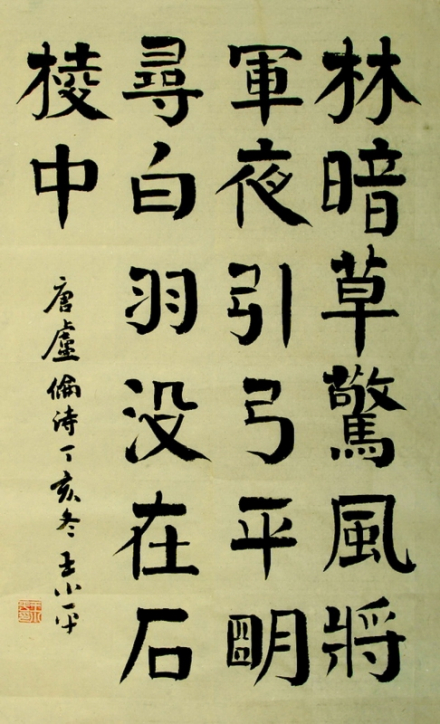 林暗草驚風將
軍夜引弓平朙
尋白羽没在石
棱中
唐盧倫诗丁亥冬王小平